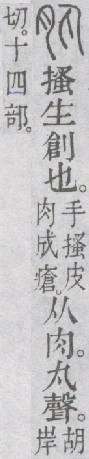 肒搔生創也。手搔皮肉成瘡。从肉。丸聲。胡岸
切。十四部。